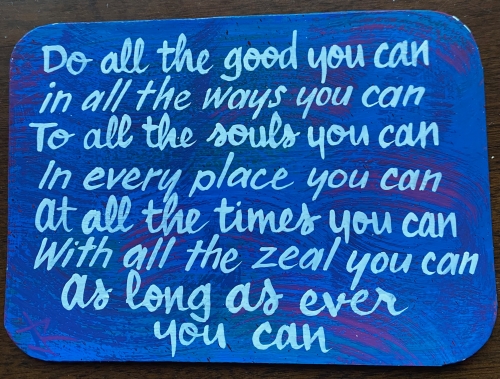 Do all the good you can
in all the ways you can
To all the souls you can
In every place you can
At all the times you can
With all the zeal you can
As long as ever
you can